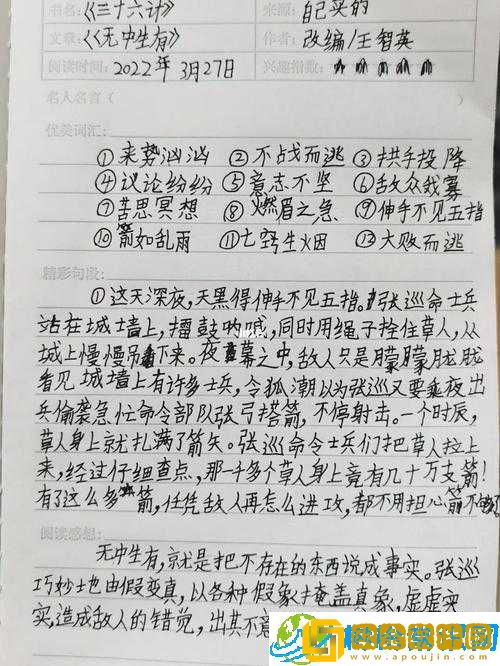 书名：《三十六计》 来源：自己买的
文章：《《无中生有》 作者：改编/王智英
阅读时间：2022年3月27日 兴趣指数：
名人名言（
优美词汇：
①来势汹汹 ②不战而逃 ③拱手投降
④议论纷纷 ⑤意志不坚 ⑥敌众我寡
⑦苦思冥想 ⑧燃眉之急 ⑨伸手不见五指
⑩箭如乱雨 ⑪七窍生烟 ⑫大败而逃
精彩句段：
①这天深夜，天黑得伸手不见五指。张巡命士兵
站在城墙上，擂鼓呐喊，同时用绳子拴住草人，从
城上慢慢吊下来。夜幕之中，敌人只是朦朦胧胧
看见城墙上有许多士兵，令狐潮以为张巡又要乘夜出
兵偷袭急忙命令部队张弓搭箭，不停射击。一个时辰，
草人身上就扎满了箭矢。张巡命令士兵们把草人拉上
来，经过仔细查点，那一千多个草人身上竟有几十万支箭！
有了这么多箭，任凭敌人再怎么进攻，都不用担心箭不
阅读感想：
无中生有，就是把不存在的东西说成事实。张巡
巧妙地由假变真，以各种假象掩盖真象，虚虚实
实，造成敌人的错觉，出其不意
www.apoujin.com